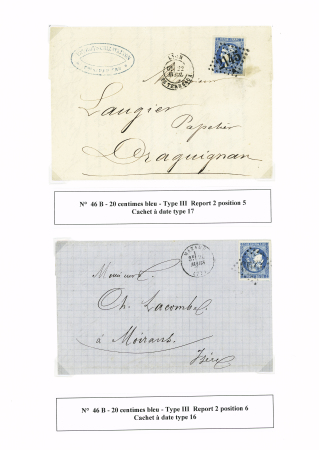 LYON
Monsieur
Laugier
Papetier
Draguignan
N° 46 B - 20 centimes bleu - Type III Report 2 position 5
Cachet à date type 17
Monsieur
Ch. Lacombe
à Moirans
Isère
N° 46 B - 20 centimes bleu - Type III Report 2 position 6
Cachet à date type 16